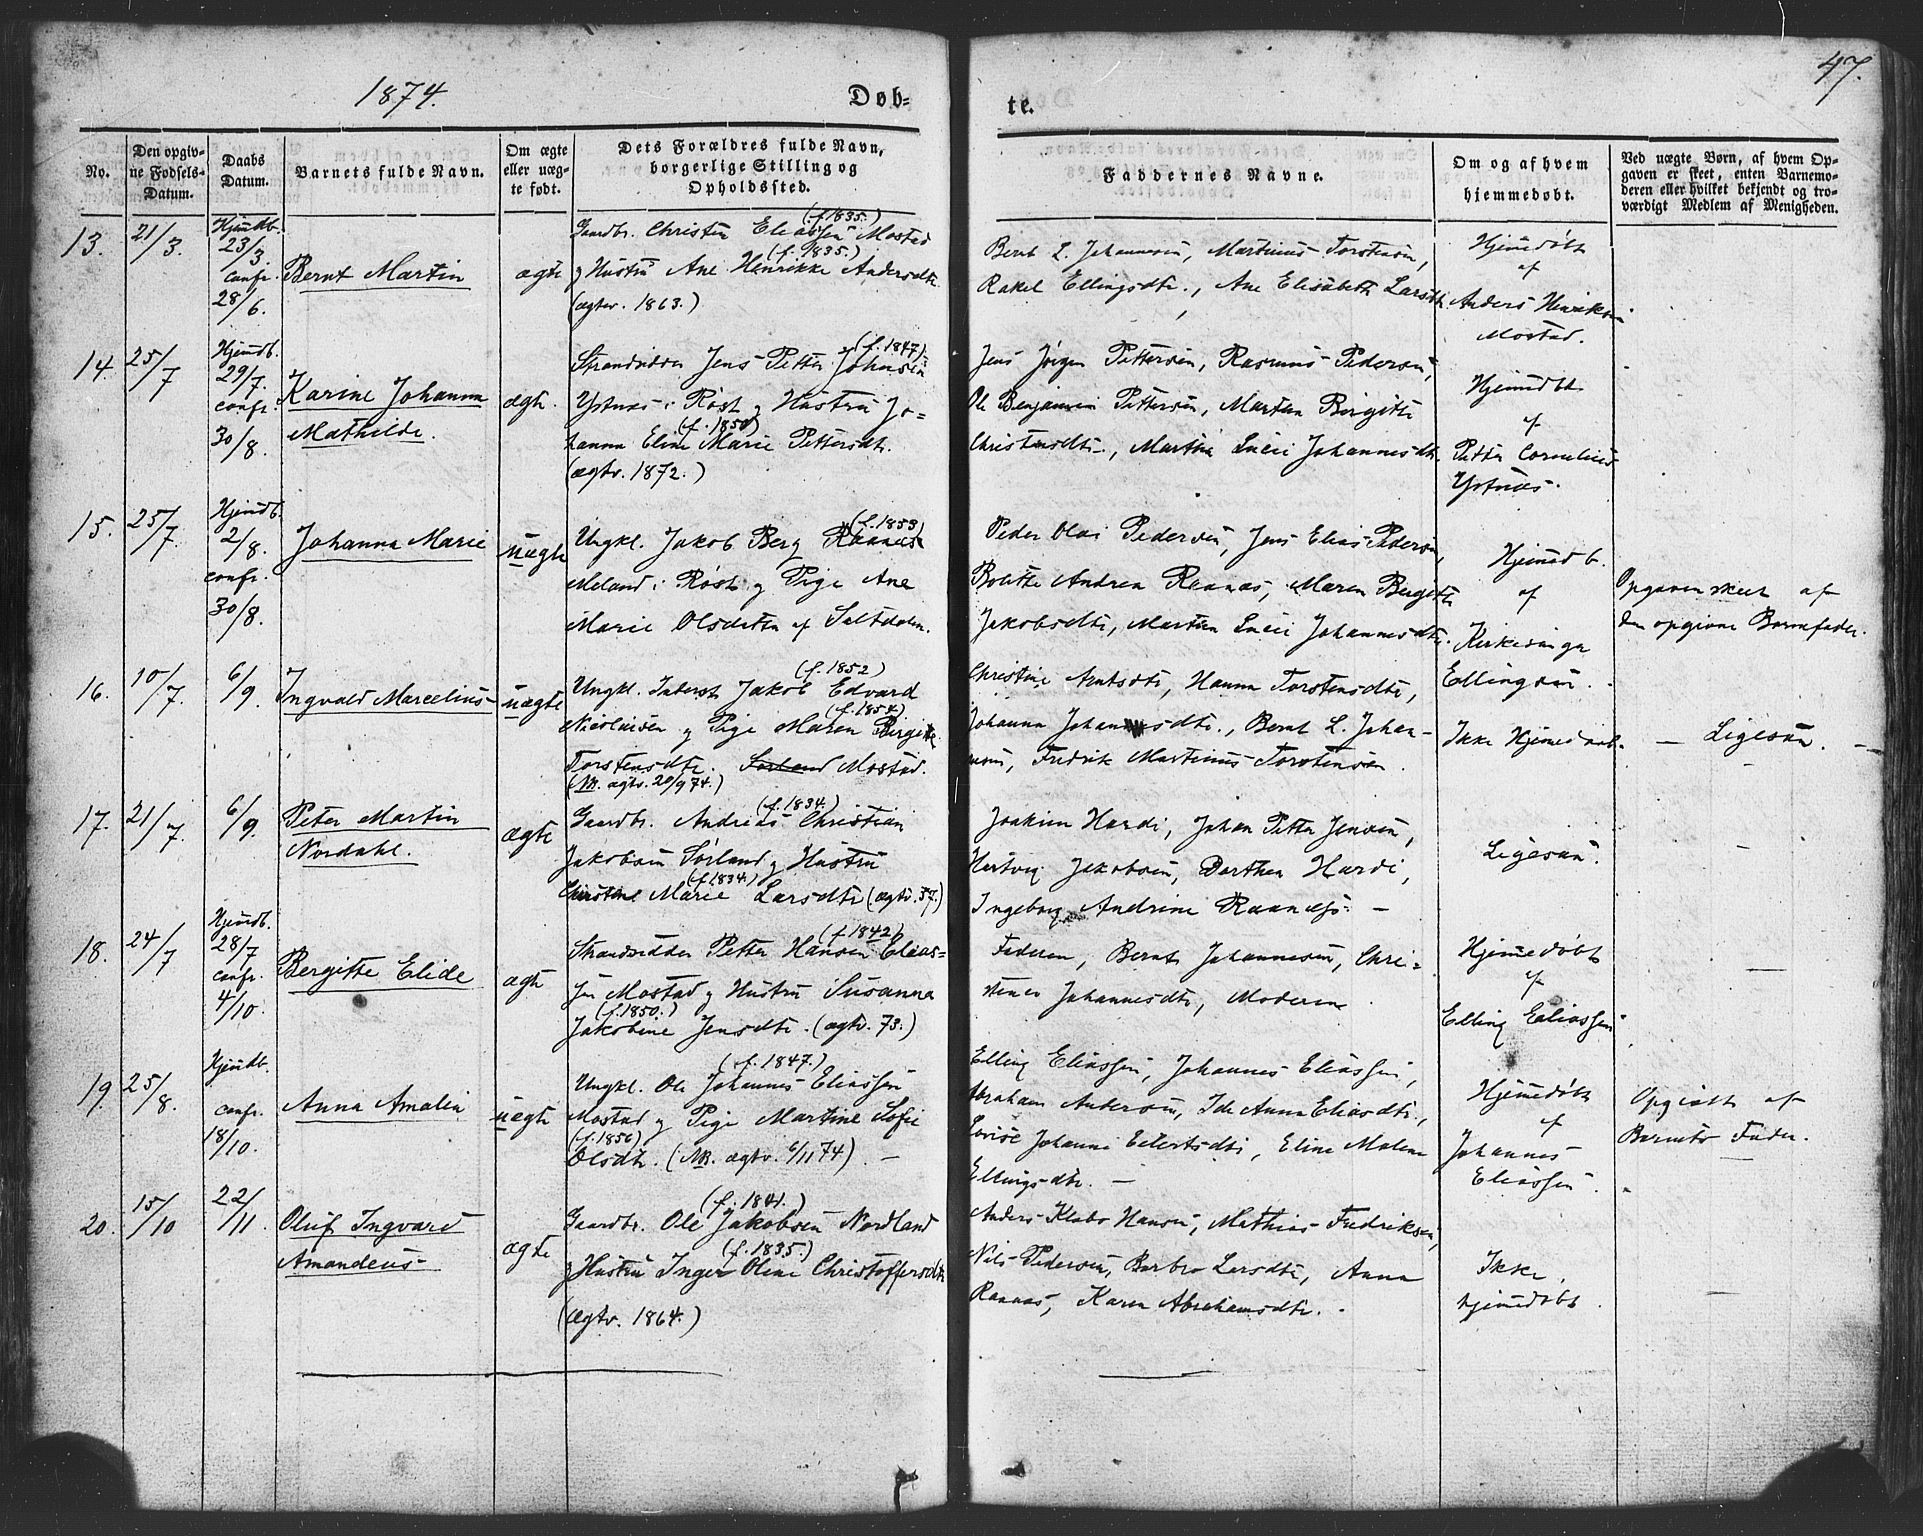 1874.
Døb-
te.
47.
No.
Den opgiv-
ne Fødsels-
Datum.
Daabs
Datum.
Barnets fulde Navn.
Om ægte
eller uæg-
te født.
Dets Forældres fulde Navn,
borgerlige Stilling og
Opholdssted.
Faddernes Navne.
Om og af hvem
hjemmedøbt.
Ved uægte Børn, af hvem Op-
gaven er skeet, enten Barnemo-
deren eller hvilket bekjendt og tro-
værdigt Medlem af Menigheden.
13.
21/3.
Hjemdb.
23/3.
confr.
28/6.
Bernt Martin
ægte
(f. 1835.)
Gaardbr. Christen Eliassen Mostad
(f. 1835.)
og Hustru Ane Henrikke Andersdtr.
(ægtev. 1863.)
Bernt L. Johannesen, Martinus Torstensen,
Rakel Ellingsdtr., Ane Elisabeth Larsdtr.
Hjemedøbt
af
Anders Henriksen
Mostad.
14.
25/7
Hjemdb.
29/7.
confr.
30/8.
Karine Johanna
Mathilde.
ægte.
(f. 1847)
Strandsidder Jens Petter Johnsen
Ystnæs i Røst og Hustru Jo-
(f. 1850)
hanna Eline Marie Pettersdtr.
(ægtv. 1872.)
Jens Jørgen Pettersen, Rasmus Pedersen,
Ole Benjamin Pettersen, Marten Birgitte
Christensdtr., Martha Lucie Johannesdtr.
Hjemedøbt
af
Petter Cornelius
Ystnæs.
15.
25/7.
Hjemdb.
2/8.
confr.
30/8.
Johanna Marie
uægte
(f. 1853)
Ungkl. Jakob Berg Raanæs
Meland i Røst og Pige Ane
Marie Olsdatter af Saltdalen.
Peder Olai Pedersen, Jens Elias Pedersen,
Bolette Andrea Raanæs, Maren Bergitte
Jakobsdtr, Marten Lucie Johannesdtr.
Hjemedb.
af
Kirkesanger
Ellingsen.
Opgaven skeet af
den opgivne Barnefader.
16.
10/7.
6/9.
Ingvald Marcelius
uægte
(f. 1852)
Ungkl. Inderst Jakob Edvard
(f. 1854)
Nicolaisen og Pige Maren Birgitte
Torstensdtr. Sørland Mostad.
(NB. ægtv. 20/9 74.)
Christine Arntsdtr, Hanna Torstensdtr,
Johanna Johannesdtr., Bernt L. Johan-
nesen, Fredrik Martinus Torstensen.
Ikke Hjemedøbt.
— Ligesaa. —
17.
21/7.
6/9.
Peter Martin
Nordahl.
ægte
(f. 1834.)
Gaardbr. Andreas Christian
Jakobsen Sørland og Hustru
(f. 1834.)
Christine Marie Larsdtr (ægtv. 57.)
Joakim Hardi, Johan Petter Jensen,
Hertvig Jakobsen, Dorthea Hardi,
Ingeborg Andrine Raanæs. —
Ligesaa.
18.
24/7
Hjemdb.
28/7
confr.
4/10.
Bergitte Elide
ægte
(f. 1842)
Strandsidder Petter Hansen Elias-
sen Mostad og Hustru Susanna
(f. 1850.)
Jakobine Jensdtr. (ægtv. 73.)
Faderen, Bernt Johannesen, Chri-
stence Johannesdtr, Moderen.
Hjemedøbt
af
Elling Eliassen
19.
25/8.
Hjemdb.
confr.
18/10.
Anna Amalia
uægte
(f. 1847.)
Ungkl. Ole Johannes Eliassen
Mostad og Pige Martine Sofie
(f. 1850)
Olsdtr. (NB. ægtv. 6/11 74) —
Elling Eliassen, Johannes Eliassen,
Abraham Andersen, Ide Anna Eliasdtr.,
Lovise Johanne Eilertsdtr, Eline Malene
Ellingsdtr. —
Hjemedøbt
af
Johannes
Eliassen.
Opgivet af
Barnets Fader.
20.
15/10
22/11.
Oluf Ingvard
Amandeus
ægte
(f. 1841.)
Gaardbr. Ole Jakobsen Nordland
(f. 1835.)
og Hustru Inger Oline Christoffersdtr
(ægtv. 1864.)
Anders Klabo Hansen, Mathias Fredriksen,
Nils Pedersen, Barbro Larsdtr, Anna
Raanæs, Karen Abrahamsdtr.
Ikke
hjemedøbt.